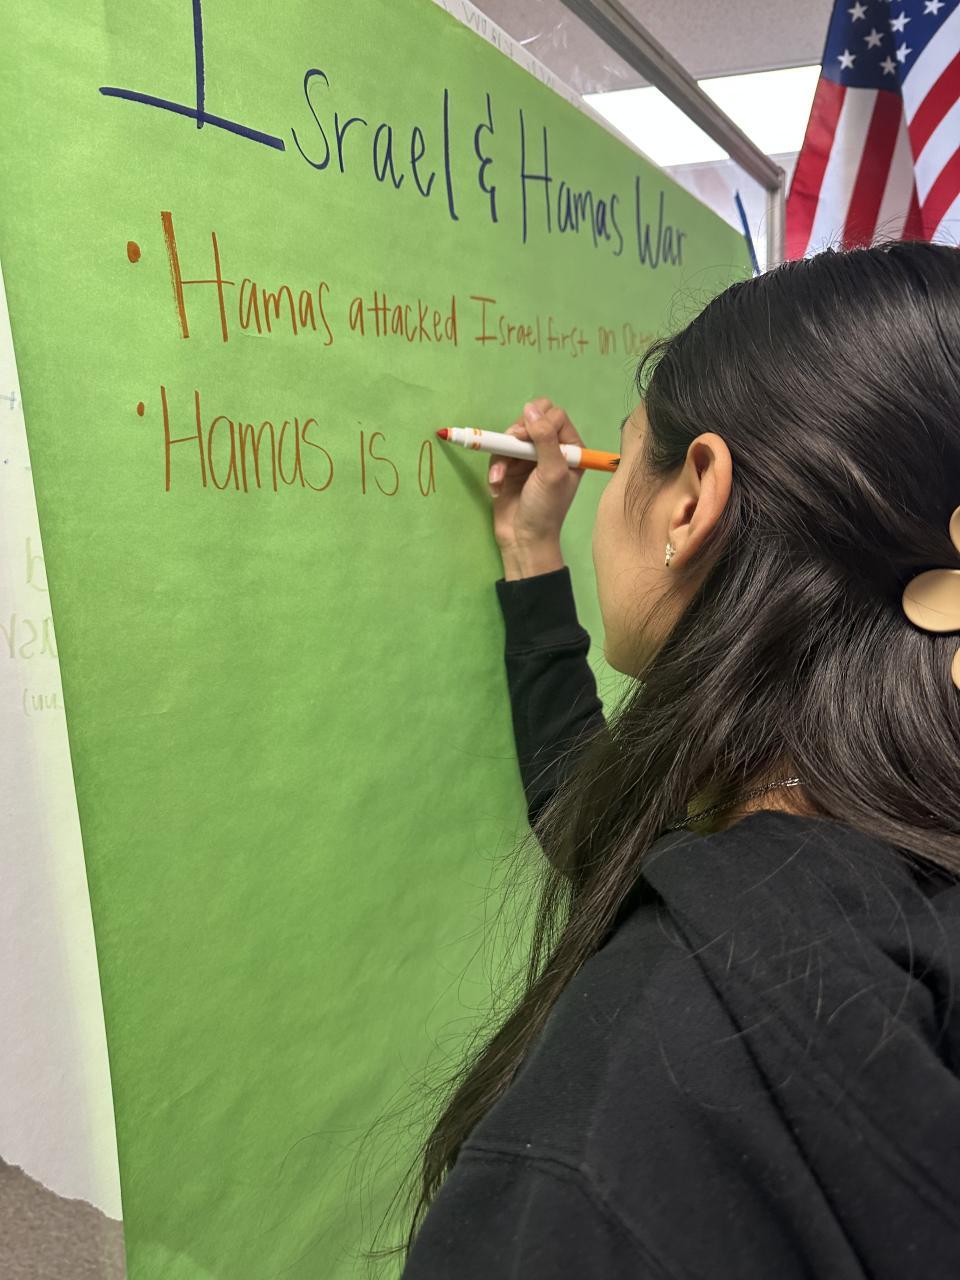 Israel & Hamas War
• Hamas attacked Israel first on
• Hamas is a